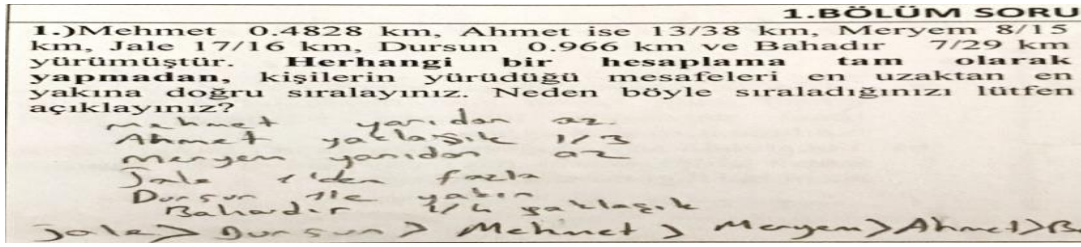 1.BÖLÜM SORU
1.)Mehmet 0.4828 km, Ahmet ise 13/38 km, Meryem 8/15
km, Jale 17/16 km, Dursun 0.966 km ve Bahadır 7/29 km
yürümüştür. Herhangi bir hesaplama tam olarak
yapmadan, kişilerin yürüdüğü mesafeleri en uzaktan en
yakına doğru sıralayınız. Neden böyle sıraladığınızı lütfen
açıklayınız?
Mehmet yarıdan az
Ahmet yaklaşık 1/3
Meryem yarıdan az
Jale 1'den fazla
Dursun 1'e yakın
Bahadır 1/4 yaklaşık
Jale > Dursun > Mehmet > Meryem > Ahmet > B